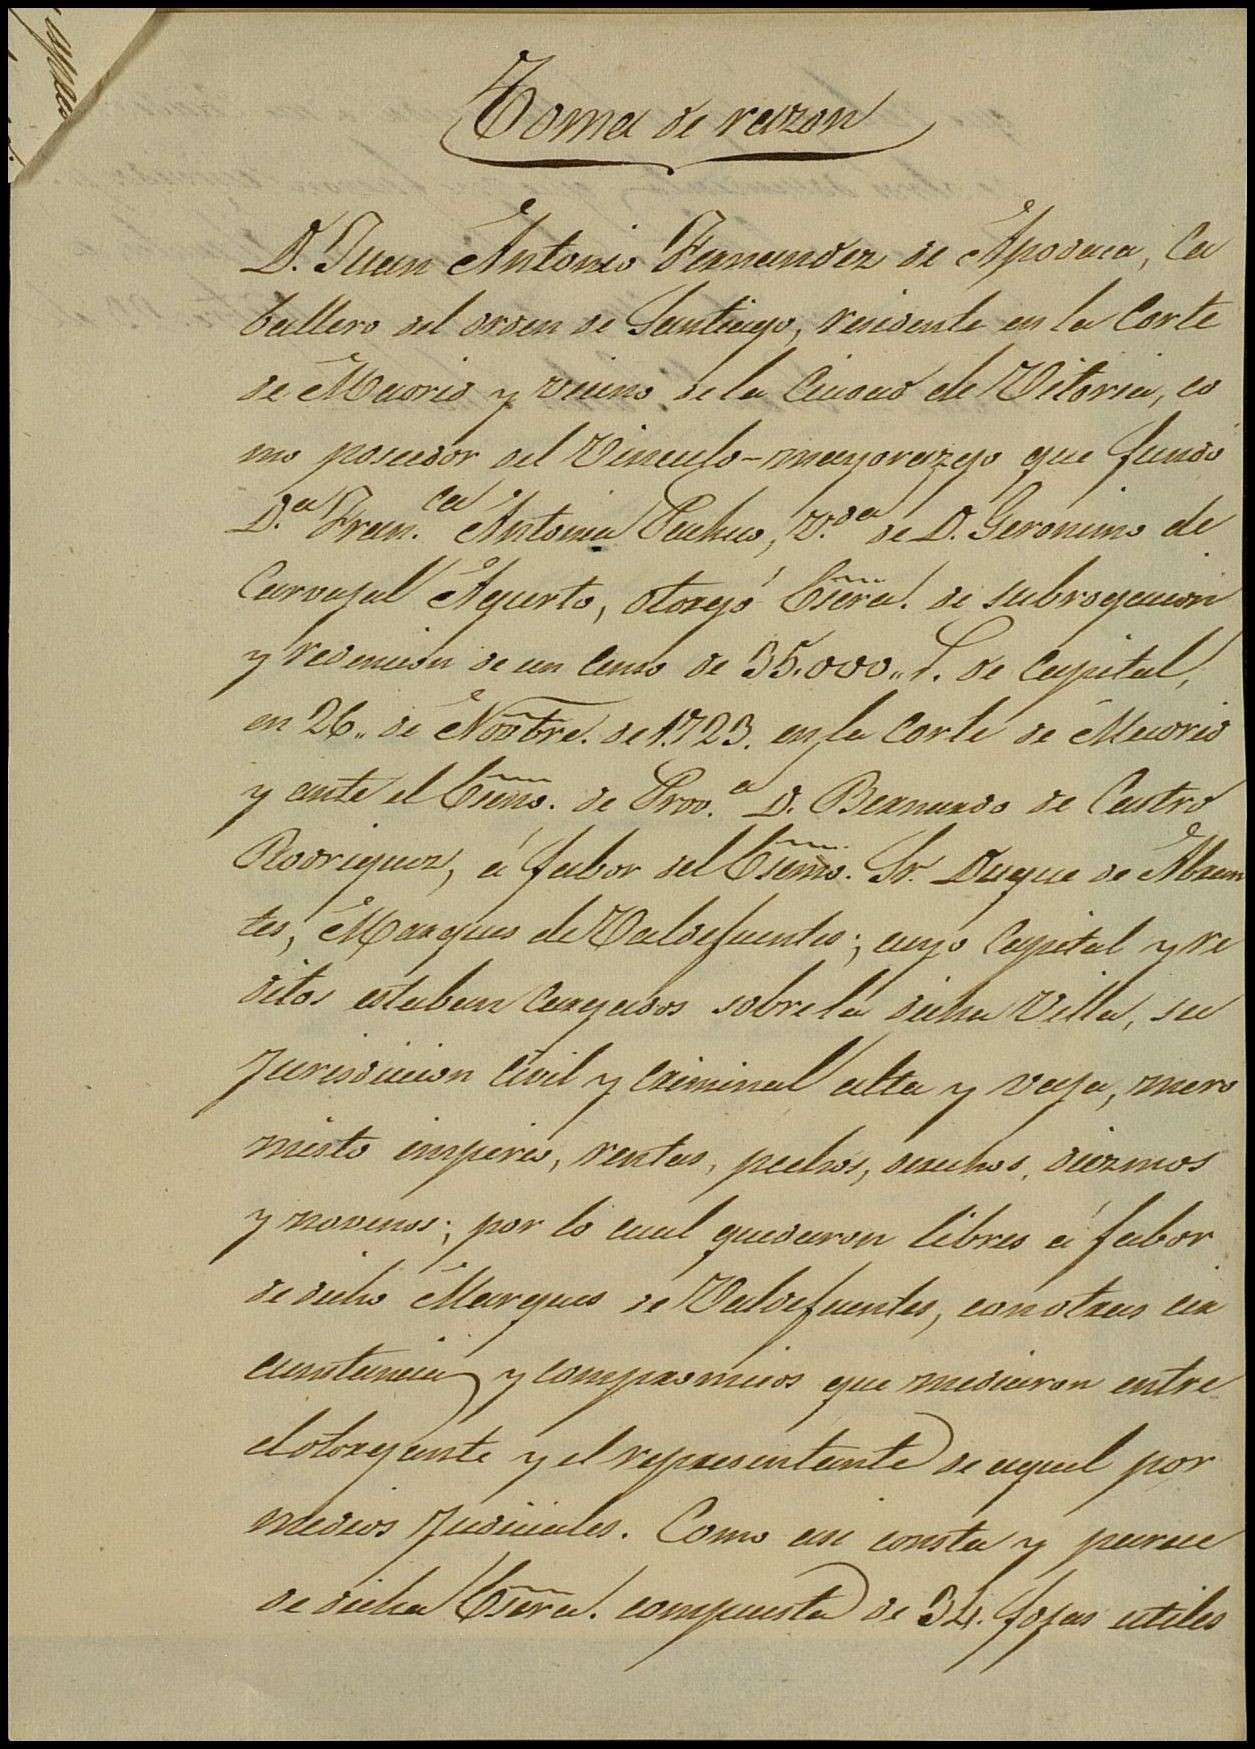 Toma de razon
D. Juan Antonio Fernandez de Apodaca, Ca
ballero del orden de Santiago, residente en la Corte
de Madrid y vecino de la Ciudad de Vitoria, co
mo poseedor del Vinculo-mayorazgo que fundó
D.ª Fran.ca Antonia Pacheco, V.da de D. Geronimo de
Carvajal Agurto, otorgó Esc̃ra. de subrogacion
y redencion de un censo de 35.000,, de Capital,
en 26,, de Nov̄bre. de 1.723. en la Corte de Madrid
y ante el Esc̃no. de Prov.ª D. Bernardo de Castro
Rodriguez, á fabor del Esc̃mo. Sr. Duque de Abran
tes, Marques de Valdefuentes; cuyo Capital y re
ditos estaban cargados sobre la dicha Villa, su
Jurisdiccion Civil y Criminal alta y vaja, mero
misto imperio, rentas, pechos, derechos, diezmos
y novenos; por lo cual quedaron libres á fabor
de dicho Marques de Valdefuentes, con otras cir
cunstancias y compromicos que mediaron entre
el otorgante y el representante de aquel por
medios Judiciales. Como asi consta y parece
de dicha Esc̃ra. compuesta de 34. fojas utiles